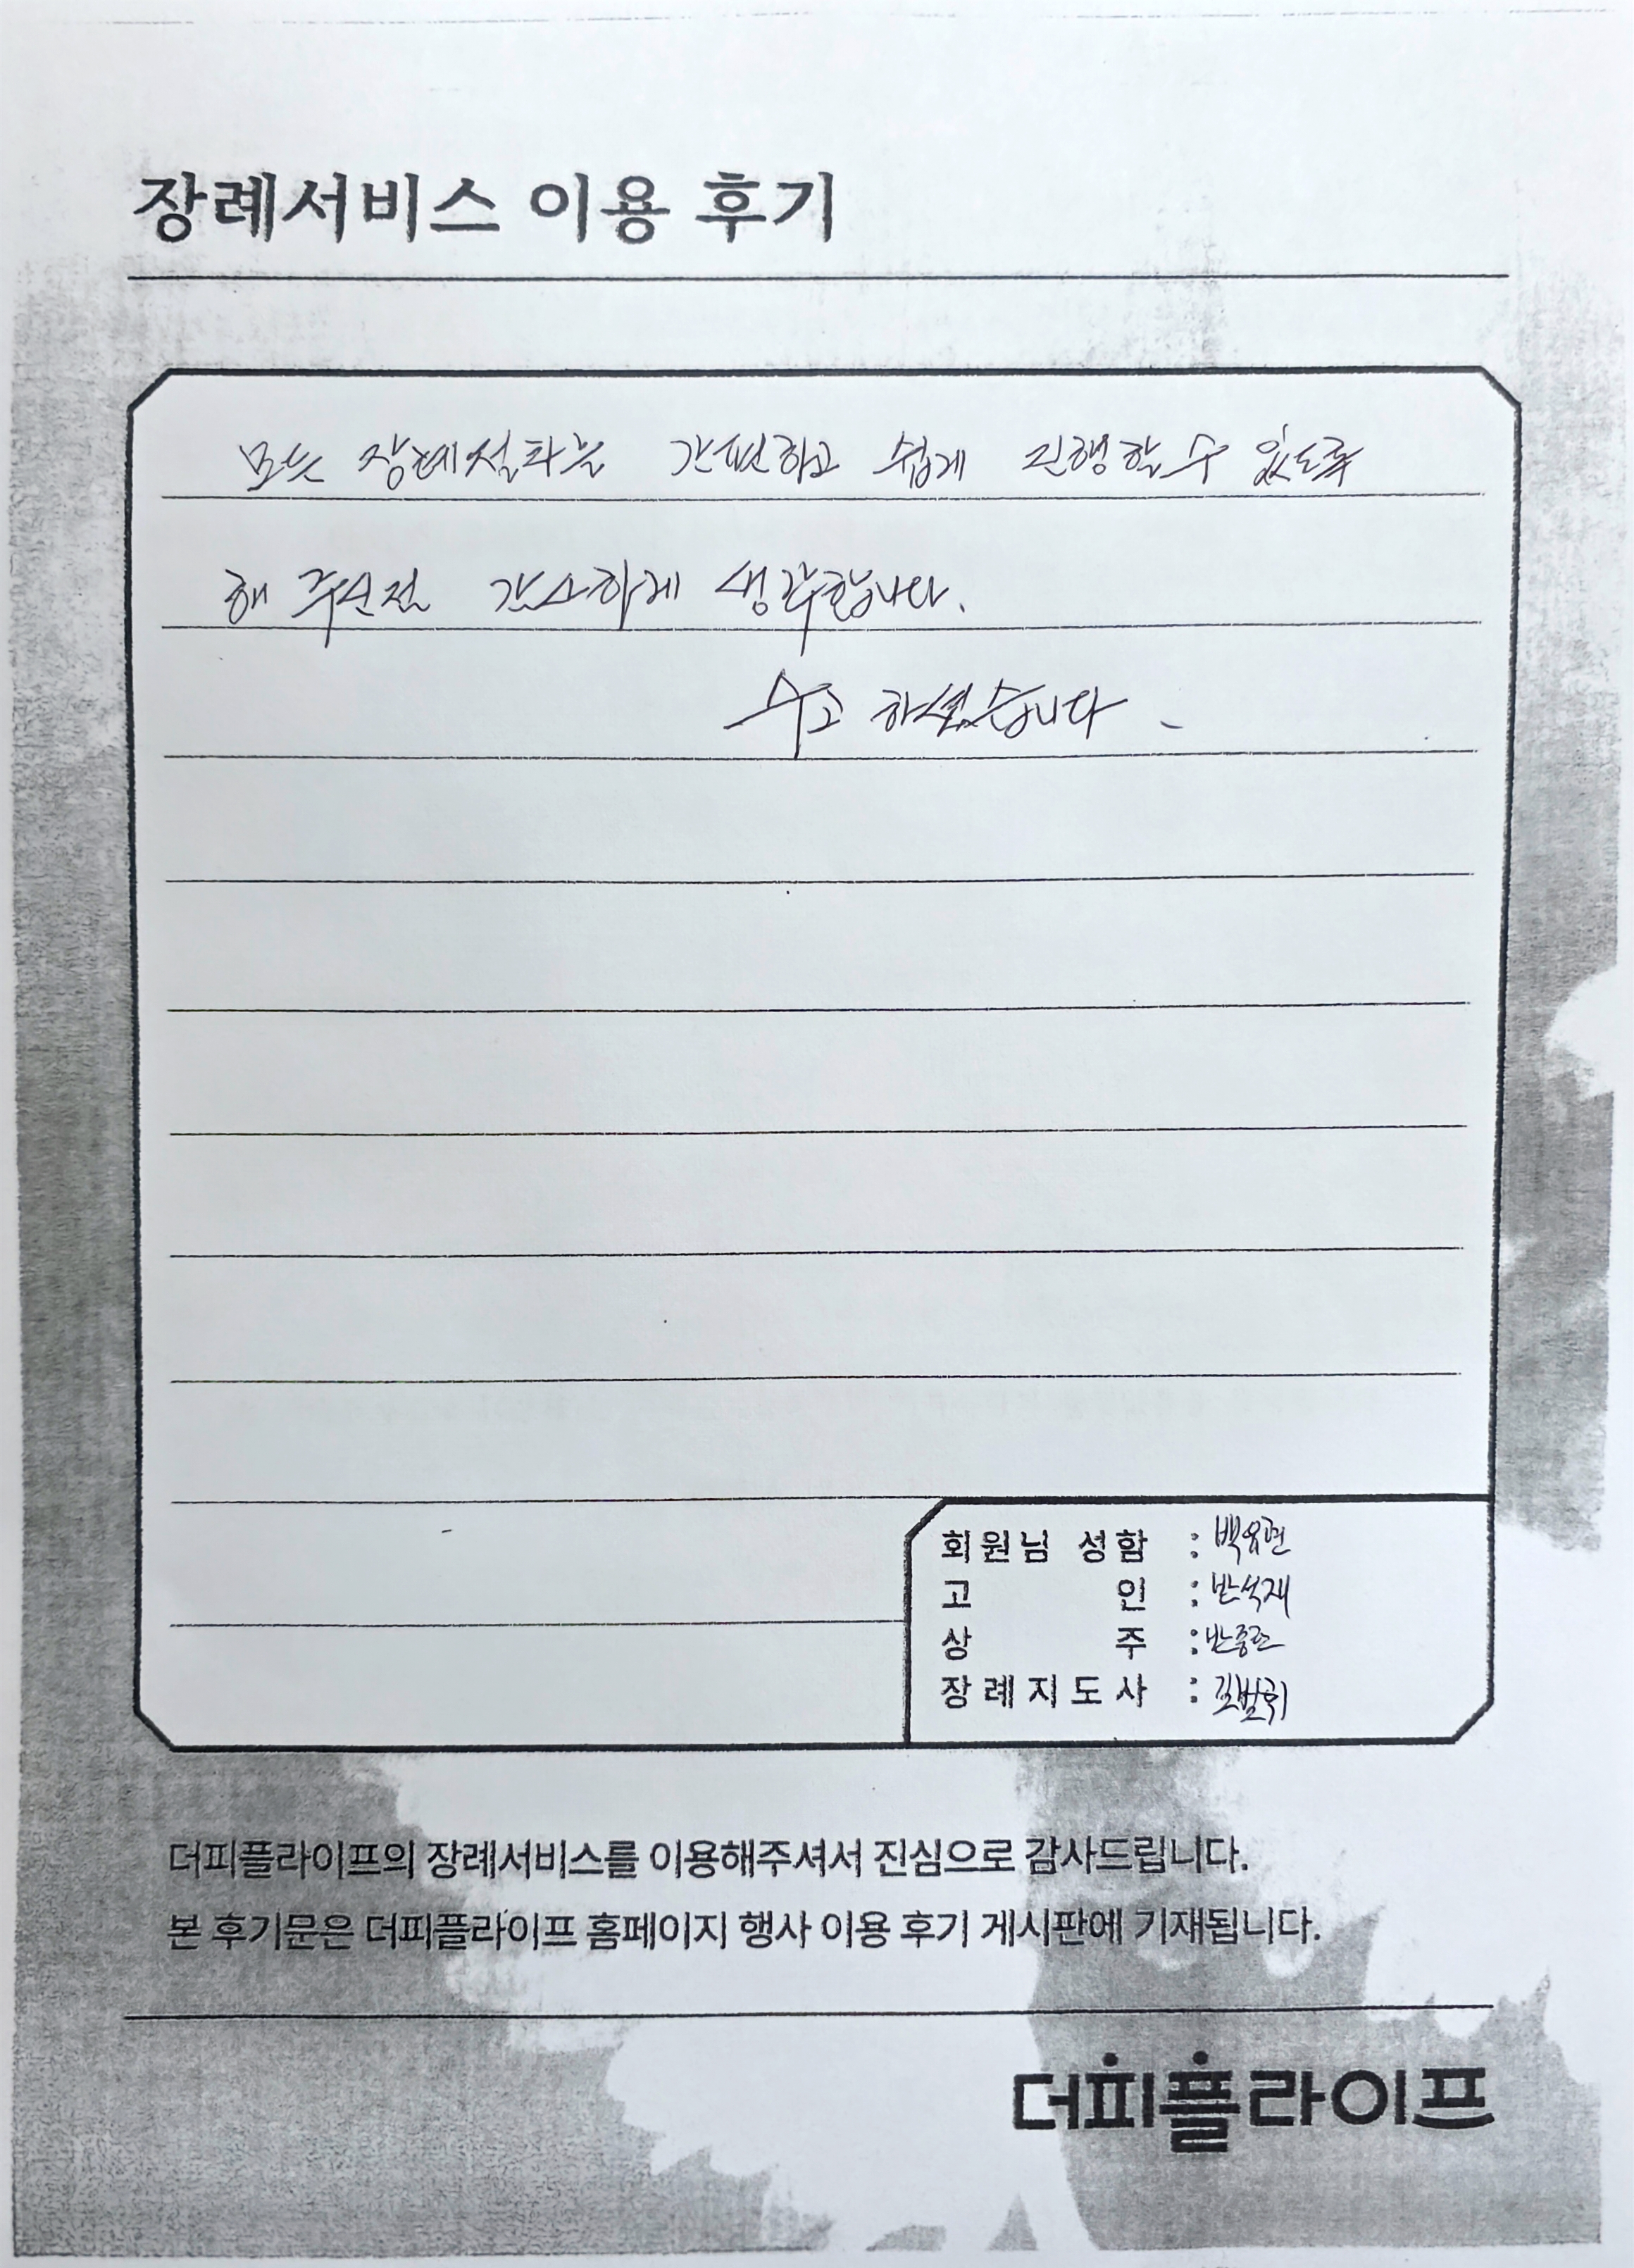 장례서비스 이용 후기
모든 장례절차를 간편하고 쉽게 진행할 수 있도록
해 주신점 감사하게 생각합니다.
수고 하셨습니다.
회원님 성함 : 백유현
고 인 : 반석재
상 주 :
장례지도사 :
더피플라이프의 장례서비스를 이용해주셔서 진심으로 감사드립니다.
본 후기문은 더피플라이프 홈페이지 행사 이용 후기 게시판에 기재됩니다.
더피플라이프